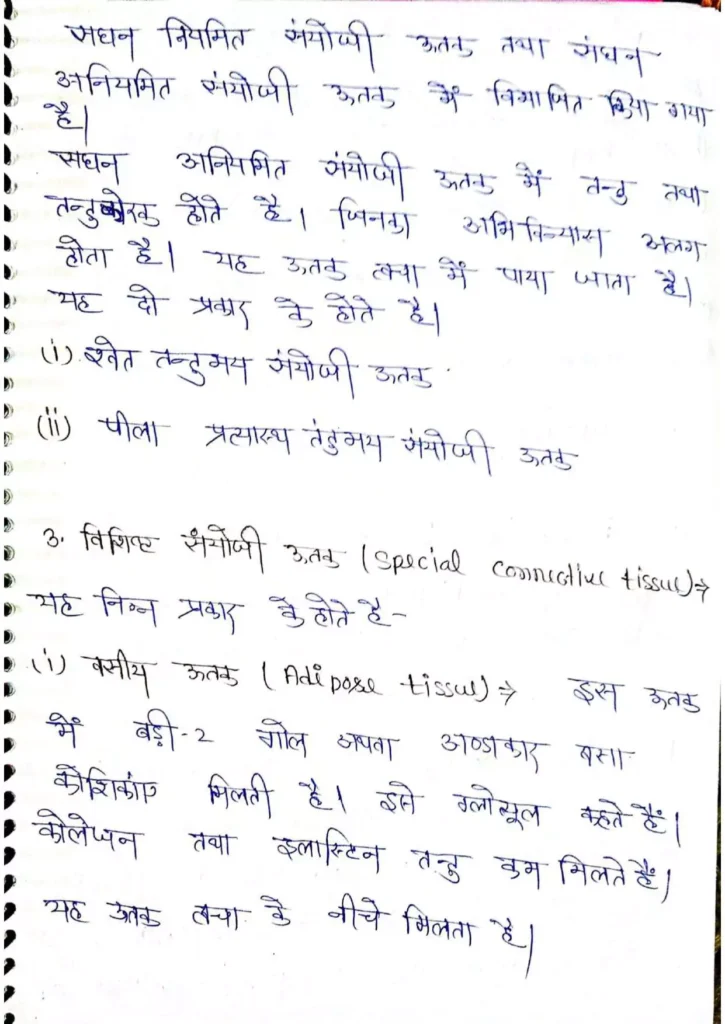 सघन नियमित संयोजी ऊतक तथा संघन
अनियमित संयोजी ऊतक में विभाजित किया गया
है।
सघन अनियमित संयोजी ऊतक में तन्तु तथा
तन्तुकोरक होते है। जिनका अभिविन्यास अलग
होता है। यह ऊतक त्वचा में पाया जाता है।
यह दो प्रकार के होते है।
(i) श्वेत तन्तुमय संयोजी ऊतक
(ii) पीला प्रत्यास्थ तंतुमय संयोजी ऊतक
3. विशिष्ट संयोजी ऊतक (Special Connective tissue)⇒
यह निम्न प्रकार के होते है-
(i) वसीय ऊतक (Adipose tissue)⇒ इस ऊतक
में बड़ी-2 गोल अथवा अण्डाकार वसा
कोशिकाएं मिलती है। इसे ग्लोब्यूल कहते हैं।
कोलेजन तथा इलास्टिन तन्तु कम मिलते हैं।
यह ऊतक त्वचा के नीचे मिलता है।